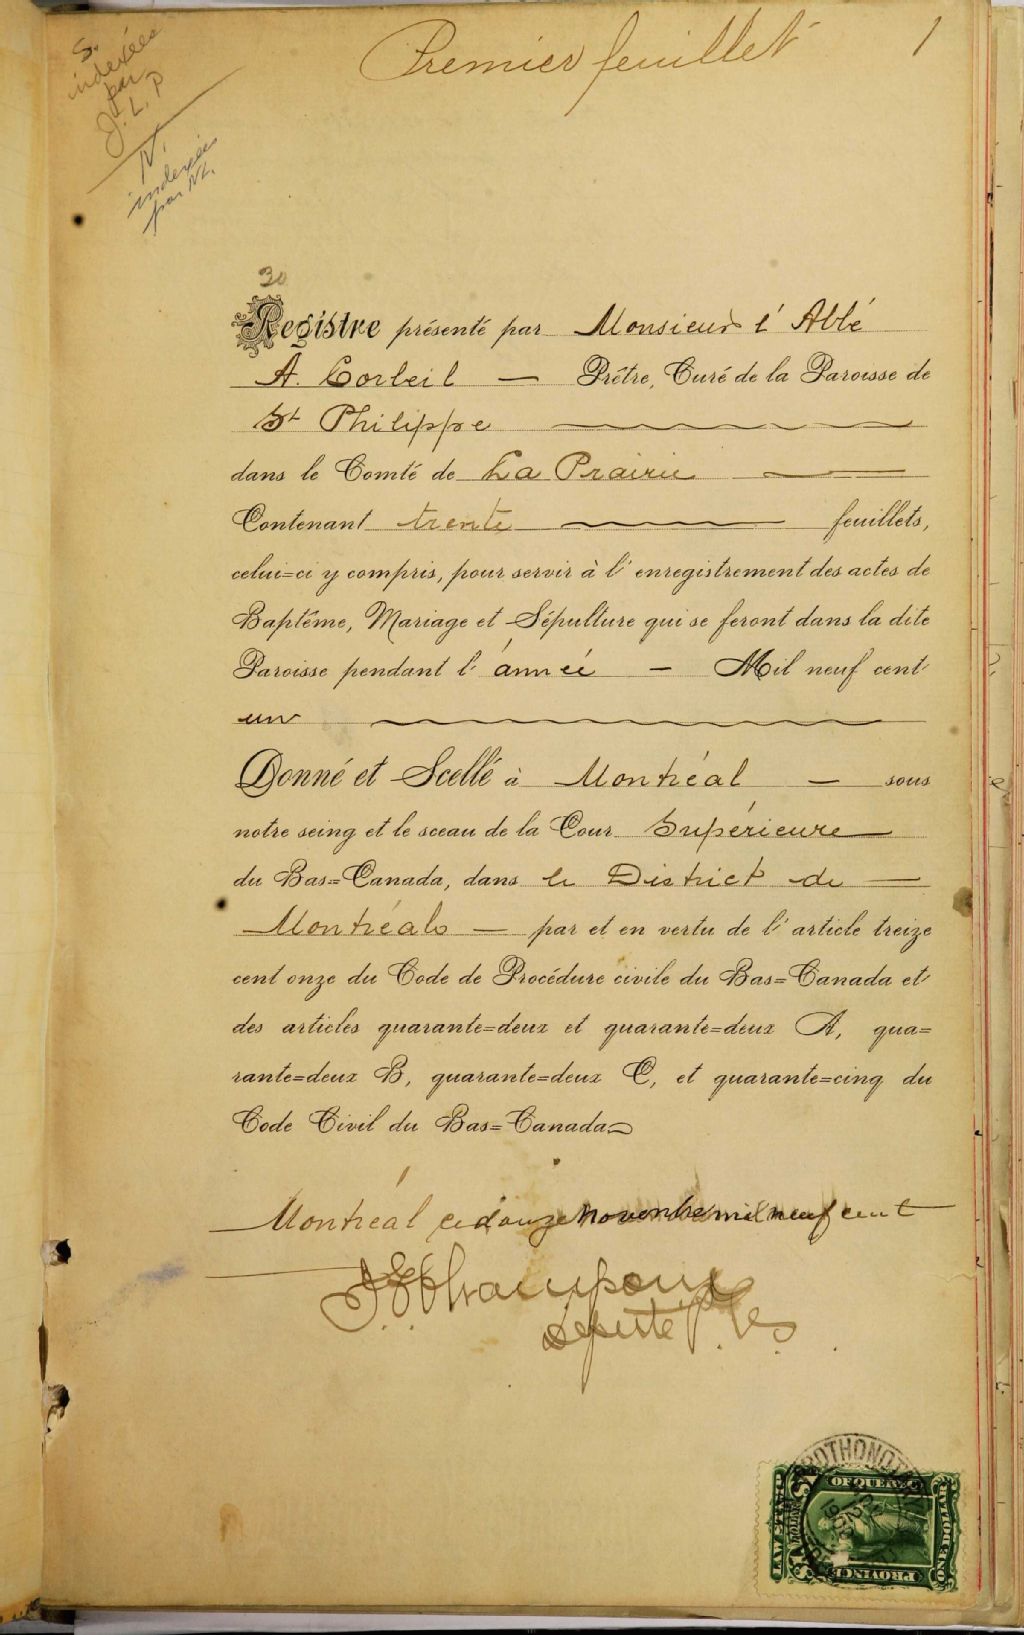 Premier feuillet
1
S.
indexées
par
J. L. P
N.
indexées
par NL.
30
Registre présenté par Monsieur l'Abbé
A. Corbeil — Prêtre, Curé de la Paroisse de
St Philippe
dans le Comté de La Prairie
Contenant trente feuillets,
celui=ci y compris, pour servir à l'enregistrement des actes de
Baptême, Mariage et Sépulture qui se feront dans la dite
Paroisse pendant l'année — Mil neuf cent
un
Donné et Scellé à Montréal — sous
notre seing et le sceau de la Cour Supérieure
du Bas=Canada, dans le District de —
Montréal — par et en vertu de l'article treize
cent onze du Code de Procédure civile du Bas=Canada et
des articles quarante=deux et quarante=deux A, qua=
rante=deux B, quarante=deux C, et quarante=cinq du
Code Civil du Bas=Canada
Montréal ce douze novembre mil neuf cent
Députe P.
PROTHONOT
LAW STAMP
PROVINCE
OF QUEBEC